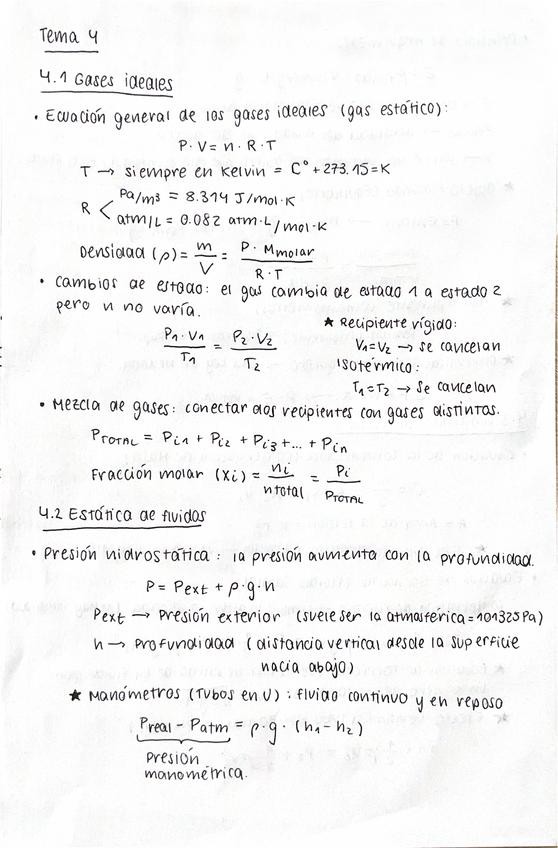 Tema 4
4.1 Gases ideales
• Ecuación general de los gases ideales (gas estático):
P·V = n·R·T
T → siempre en Kelvin = C° + 273.15 = K
R < Pa/m³ = 8.314 J/mol·K
atm/L = 0.082 atm·L/mol·K
Densidad (ρ) = m/V = P·Mmolar/R·T
• Cambios de estado: el gas cambia de estado 1 a estado 2
pero n no varía.
★ Recipiente vígido:
P1·V1/T1 = P2·V2/T2
V1=V2 → se cancelan
Isotérmico:
T1=T2 → se cancelan
• Mezcla de gases: conectar dos recipientes con gases distintos.
PTOTAL = Pi1 + Pi2 + Pi3 + ... + Pin
Fracción molar (Xi) = ni/ntotal = Pi/PTOTAL
4.2 Estática de fluidos
• Presión hidrostática: la presión aumenta con la profundidad.
P = Pext + ρ·g·h
Pext → Presión exterior (suele ser la atmosférica = 101325 Pa)
h → Profundidad (distancia vertical desde la superficie
hacia abajo)
★ Manómetros (Tubos en U): fluido continuo y en reposo
Preal - Patm = ρ·g·(h1-h2)
Presión
manométrica.